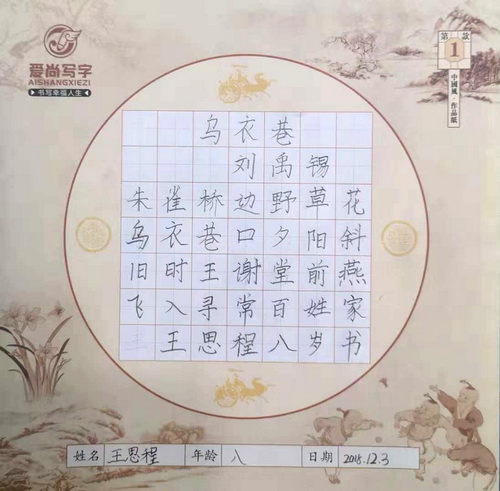 爱尚写字
AISHANGXIEZI
书写幸福人生
第1款
中國風·作品紙
乌衣巷
刘禹锡
朱雀桥边野草花
乌衣巷口夕阳斜
旧时王谢堂前燕
飞入寻常百姓家
王思程八岁书
姓名 王思程 年龄 八 日期 2018.12.3